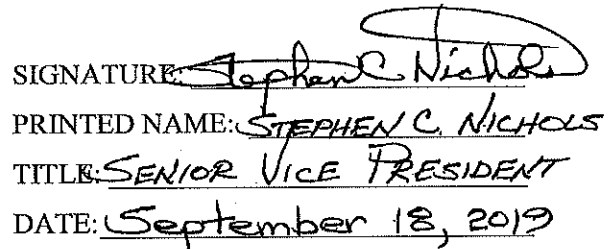 SIGNATURE: Stephen C Nichols
PRINTED NAME: STEPHEN C. NICHOLS
TITLE: SENIOR VICE PRESIDENT
DATE: September 18, 2019